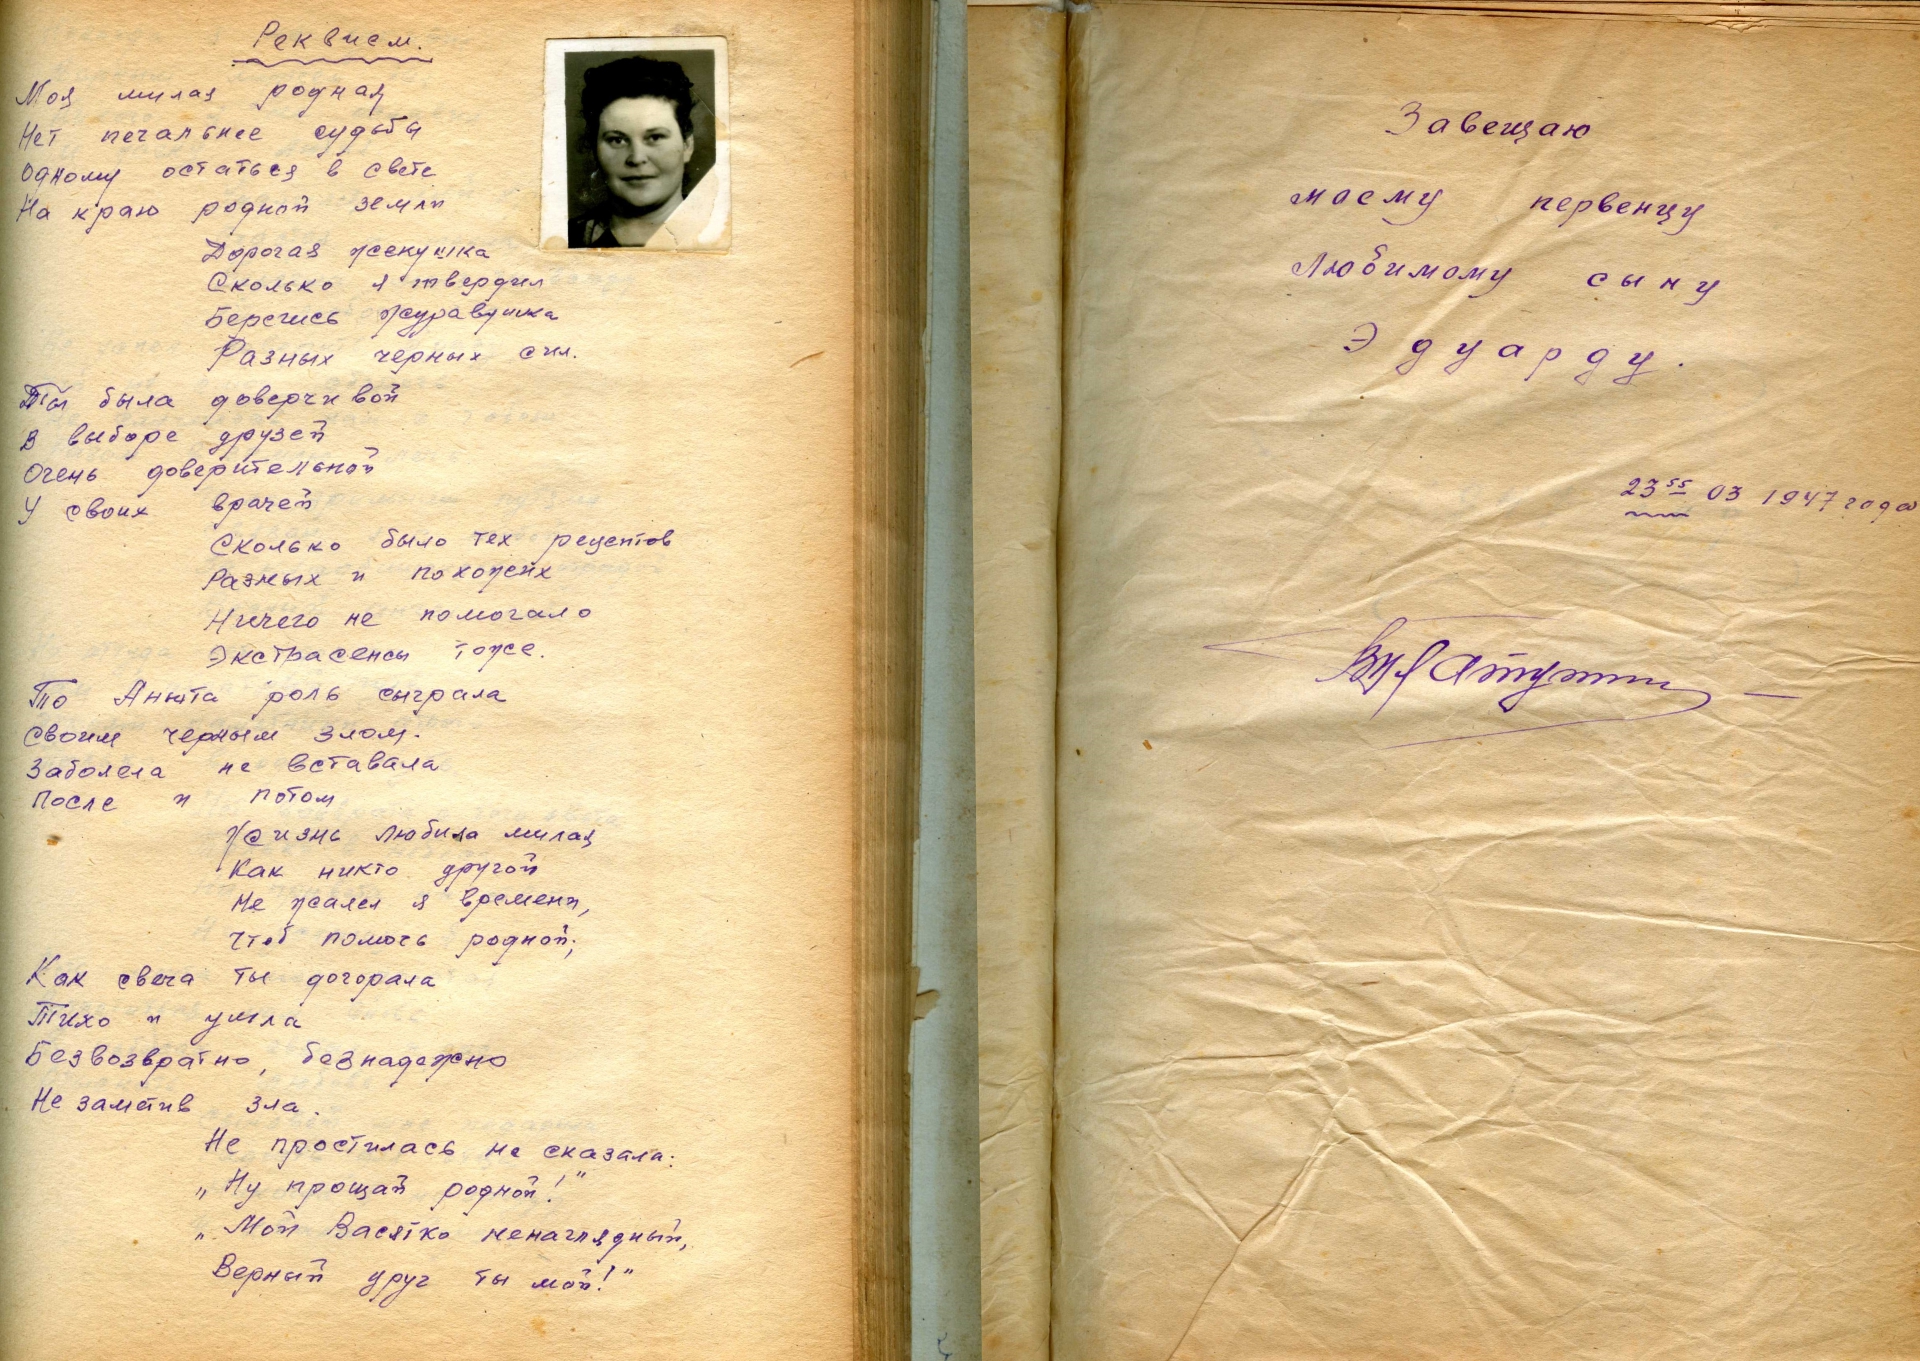 Реквием.
Моя милая родная
Нет печальнее судьбы
Одному остаться в свете
На краю родной земли
Дорогая женушка
Сколько я твердил
Берегись журавушка
Разных черных сил.
Ты была доверчивой
В выборе друзей
Очень доверительной
У своих врачей
Сколько было тех рецептов
Разных и похожих
Ничего не помогало
Экстрасенсы тоже.
То Анюта роль сыграла
Своим черным злом.
Заболела не вставала
После и потом
Жизнь любила милая
Как никто другой
Не жалел я времени,
Чтоб помочь родной;
Как свеча ты догорала
Тихо и ушла
Безвозвратно, безнадежно
Не заметив зла.
Не простилась не сказала:
„Ну прощай родной!"
„Мой Васятко ненаглядный,
Верный друг ты мой!"
Завещаю
моему первенцу
Любимому сыну
Эдуарду.
23⁵⁵ 03 1947 года